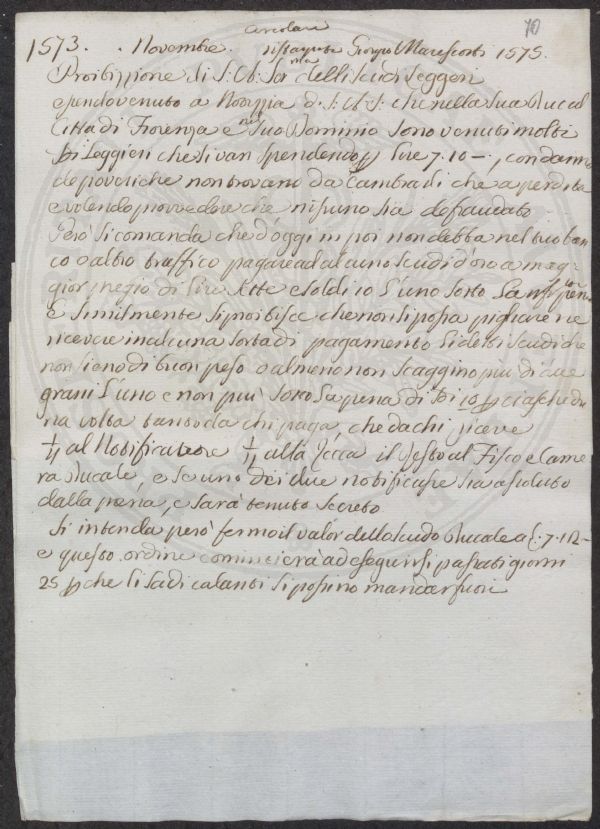 circolare 70
1573. . Novembre. ristampata Giorgio Marescotti 1575.
Proibizzione di S: A: Ser.ma delli scudi leggeri
essendo venuto a Notizzia d. S: A: S: che nella sua Ducal
Città di Fiorenza e nel suo Dominio sono venuti molti
leggieri che si van spendendo p lire 7.10–, con danno
de poveri che non trovano da Cambiarli che a perdita
e volendo provvedere che nissuno sia defraudato
Però si comanda che d'oggi in poi non debba nel suo ban
co o altro traffico pagare ad alcuno scudi d'oro a mag
gior prezzo di lire sette e soldi 10 l'uno sotto la
E similmente si proibisce che non si possa pigliare ne
ricevere in alcuna sorta di pagamento li detti scudi che
non sieno di buon peso o almeno non scaggino più di due
grani l'uno e non più sotto la pena di 10 p ciaschedu
na volta tanto da chi paga, che da chi riceve
al Notificatore alla Zecca il resto al Fisco e Came
ra Ducale, e se uno dei due notificasse sia assoluto
dalla pena, e sarà tenuto secreto
Si intenda però fermo il valor dello scudo Ducale a £. 7.12–
e questo ordine comincierà ad eseguirsi passati giorni
25 p che li scudi calanti si possino mandar fuori